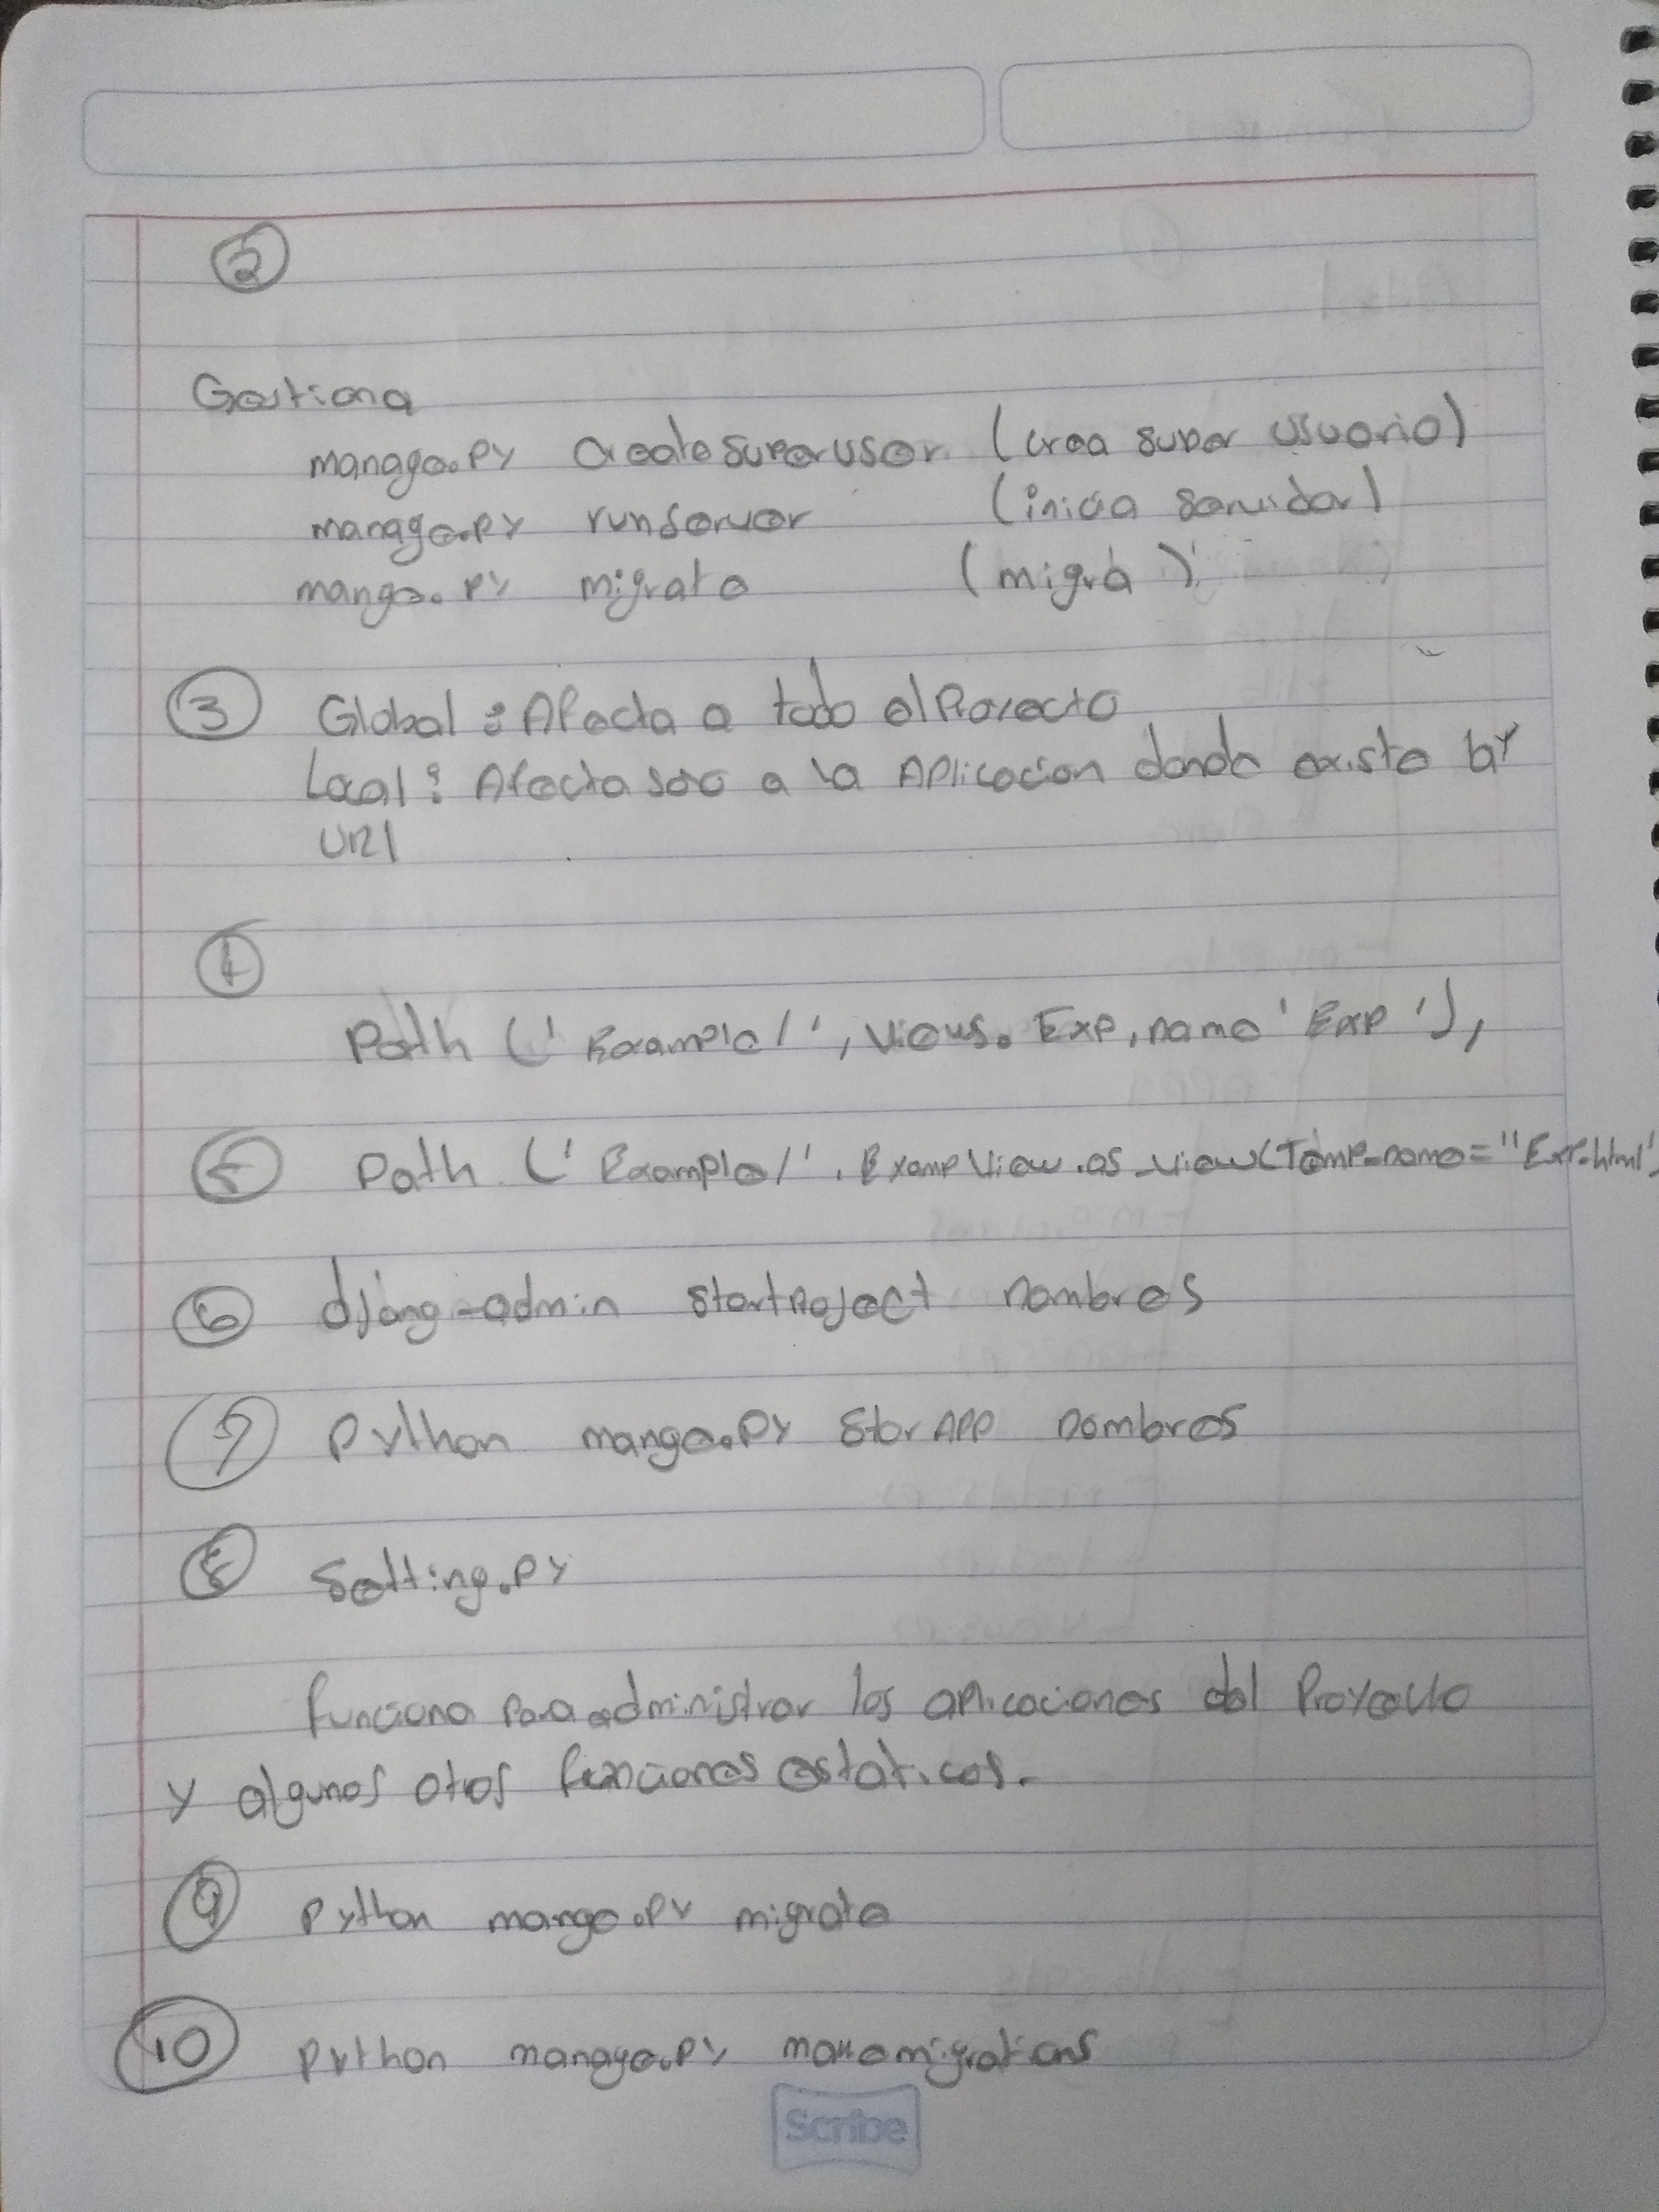 2
Gestiona
manage.py createsuperuser (crea super usuario)
manage.py runserver (inicia servidor)
mange.py migrate (migra)
3 Global: Afecta a todo el Proyecto
Local: Afecta solo a la Aplicacion donde existe
url
4
Path ('Example/', views.Exp, name 'Exp'),
5 Path ('Example/'. ExampView.as_view(Temp_name="Exp.html'
6 djang-admin startproject nombres
7 Python mange.py starApp nombres
8 Setting.py
funciona para administrar las aplicaciones del Proyecto
y algunos otros funciones estaticos.
9 Python mange.py migrate
10 Python manage.py makemigrations
Scribe